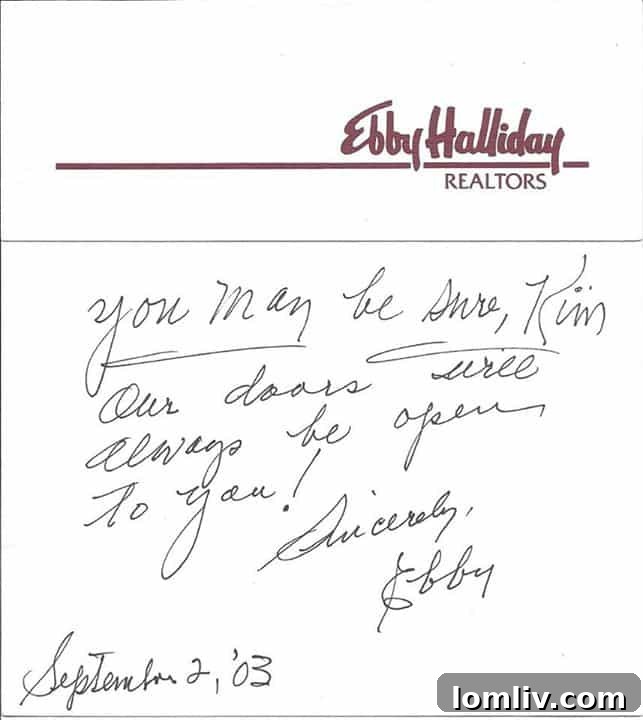 Ebby Halliday
REALTORS
you may be sure, Kim
Our doors will
always be open
to you!
Sincerely,
Ebby
September 2, '03
lomliv.com